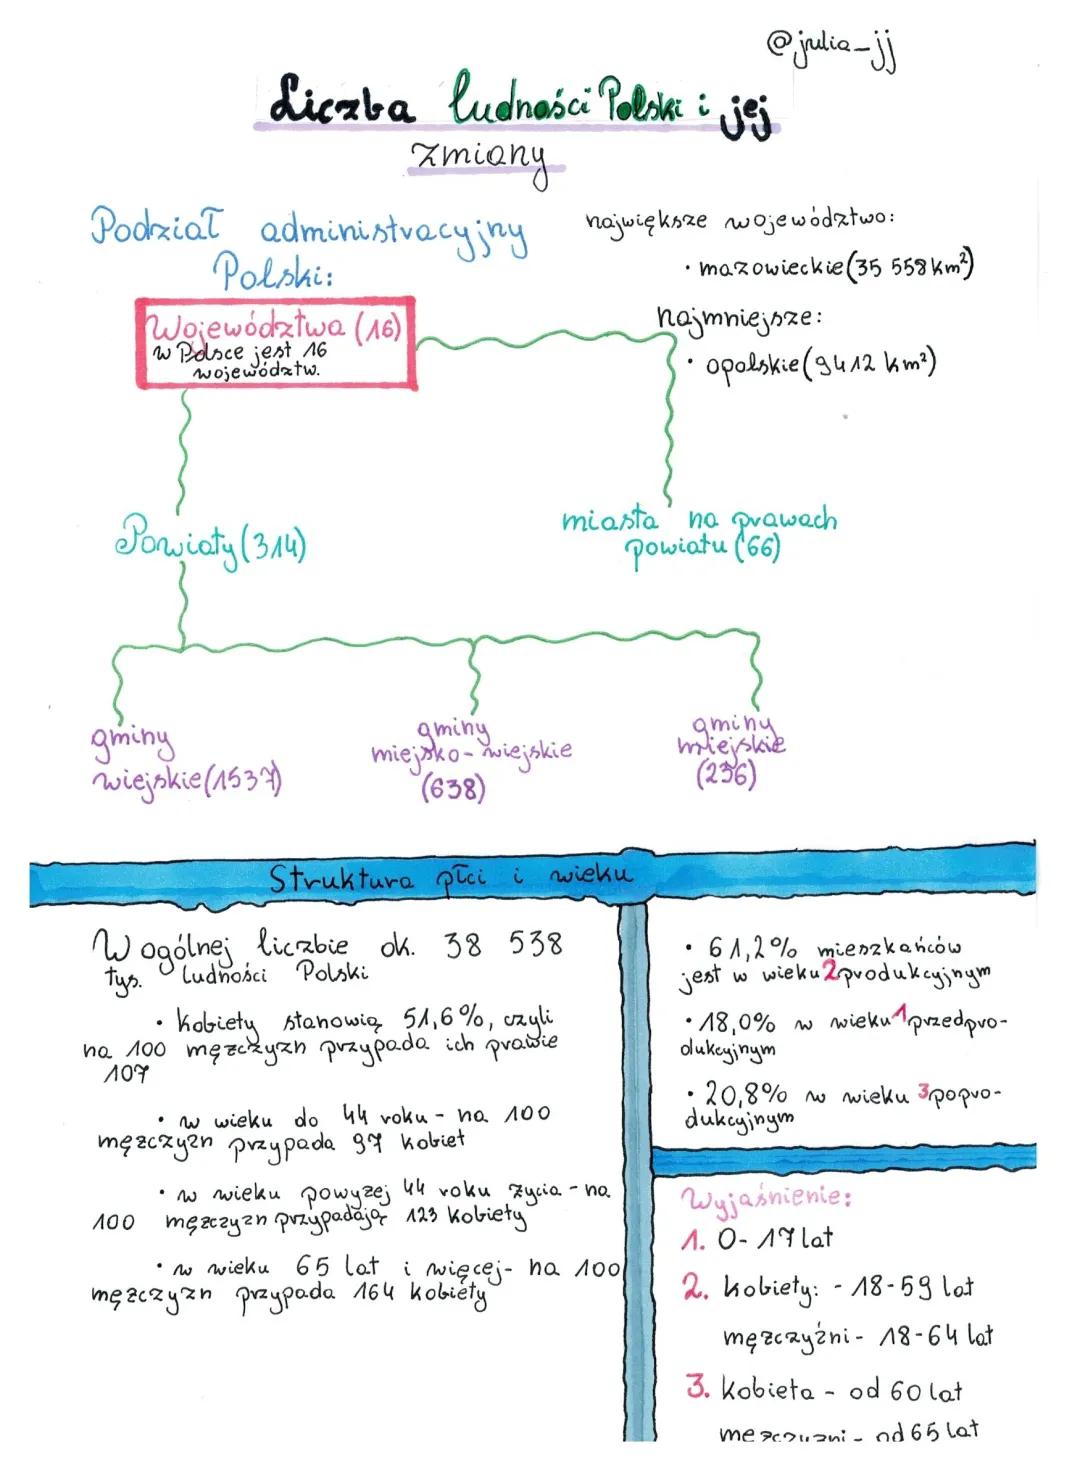 @julia_jj
Liczba ludności Polski i jej
zmiany
Podział administracyjny
Polski:
Województwa (16)
w Polsce jest 16
województw.
największe województwo:
• mazowieckie (35 558 km²)
najmniejsze:
• opolskie (9412 km²)
Powiaty (314)
miasta na prawach
powiatu (66)
gminy
wiejskie (1537)
gminy
miejsko-wiejskie
(638)
gminy
miejskie
(236)
Struktura płci i wieku
W ogólnej liczbie ok. 38 538
tys. ludności Polski
• kobiety stanowią 51,6%, czyli
na 100 mężczyzn przypada ich prawie
107
• w wieku do 44 roku - na 100
mężczyzn przypada 97 kobiet
• w wieku powyżej 44 roku życia - na
100 mężczyzn przypadają 123 kobiety
• w wieku 65 lat i więcej - na 100
mężczyzn przypada 164 kobiety
• 61,2% mieszkańców
jest w wieku 2 produkcyjnym
• 18,0% w wieku 1 przedpro-
dukcyjnym
• 20,8% w wieku 3 popro-
dukcyjnym
Wyjaśnienie:
1. 0-17 lat
2. kobiety: - 18-59 lat
mężczyźni - 18-64 lat
3. kobieta - od 60 lat
mężczyzni - od 65 lat